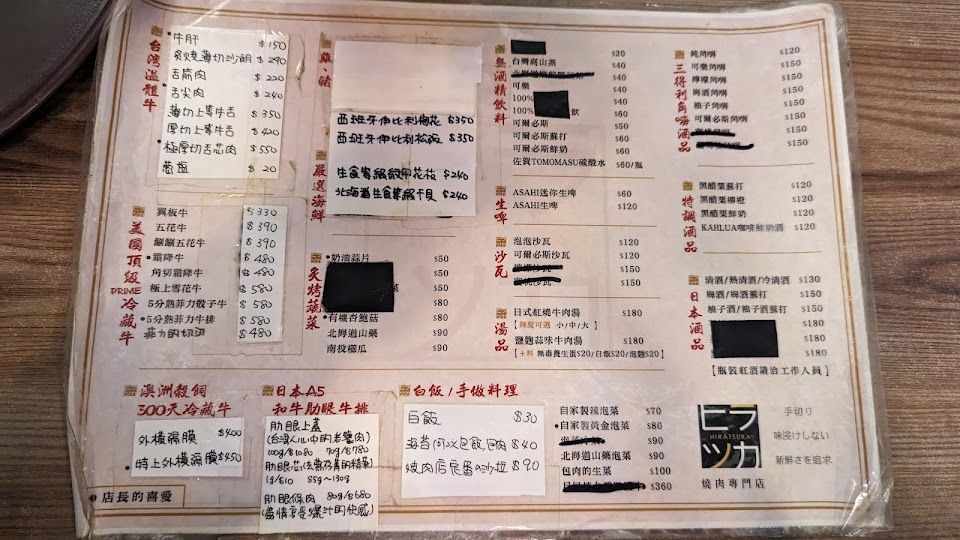 台灣溫體牛
牛肝 $150
炙燒薄切沙朗 $290
舌筋肉 $220
舌尖肉 $240
薄切上等牛舌 $350
厚切上等牛舌 $420
極厚切舌芯肉 $550
蔥鹽 $20
美國頂級PRIME冷藏牛
翼板牛 $330
五花牛 $390
涮涮五花牛 $390
霜降牛 $480
角切霜降牛 $480
極上雪花牛 $580
5分熟菲力骰子牛 $580
5分熟菲力牛排 $580
菲力的切邊 $480
雞、豬
西班牙伊比利梅花 $350
西班牙伊比利松飯 $350
嚴選海鮮
$240
北海道生食集級干貝 $240
炙烤蔬菜
奶油蒜片 $50
$50
$50
有機杏鮑菇 $80
北海道山藥 $90
南投櫛瓜 $90
無酒精飲料
$20
台灣高山茶 $40
$40
可樂 $40
100% $40
100% 飲 $60
可爾必斯 $50
可爾必斯蘇打 $60
可爾必斯鮮奶 $60
佐賀TOMOMASU碳酸水 $60/瓶
生啤
ASAHI迷你生啤 $60
ASAHI生啤 $120
沙瓦
泡泡沙瓦 $120
可爾必斯沙瓦 $120
$150
$150
湯品
日式紅燒牛肉湯 $180
【辣度可選 小/中/大】
鹽麴蒜味牛肉湯 $180
【+料 無毒養生蛋$20/白飯$20/泡麵$20】
三得利角嗨酒品
純角嗨 $120
可樂角嗨 $150
檸檬角嗨 $150
梅酒角嗨 $150
柚子角嗨 $150
可爾必斯角嗨 $150
$150
$150
特調酒品
黑醋栗蘇打 $120
黑醋栗柳橙 $120
黑醋栗鮮奶 $120
KAHLUA咖啡鮮奶酒 $120
日本酒品
清酒/熱清酒/冷清酒 $130
梅酒/梅酒蘇打 $150
柚子酒/柚子酒蘇打 $150
$180
$180
$180
【瓶裝紅酒請洽工作人員】
澳洲穀飼
300天冷藏牛
外橫隔膜 $400
特上外橫隔膜 $450
店長的喜愛
日本A5
和牛肋眼牛排
肋眼上蓋
(台灣人心中的老饕肉)
100g/$1080 70g/$780
肋眼芯
85g~130g
肋眼條肉 80g/$680
白飯/手做料理
白飯 $30
$40
燒肉店長番の沙拉 $90
自家製辣泡菜 $70
自家製黃金泡菜 $80
$90
北海道山藥泡菜 $90
包肉的生菜 $100
$360
ヒラツカ
HIRATSUKA
手切り
味浸けしない
新鮮さを追求
燒肉專門店